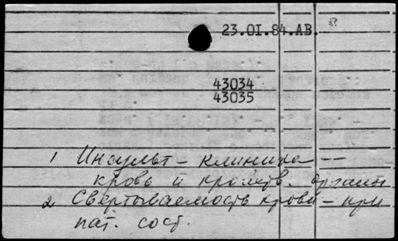 23.01.84.АВ.
43034
43035
1 Инсульт – клиника --
кровь и кроветв. органы
2. Свертываемость крови – при
пат. сост.